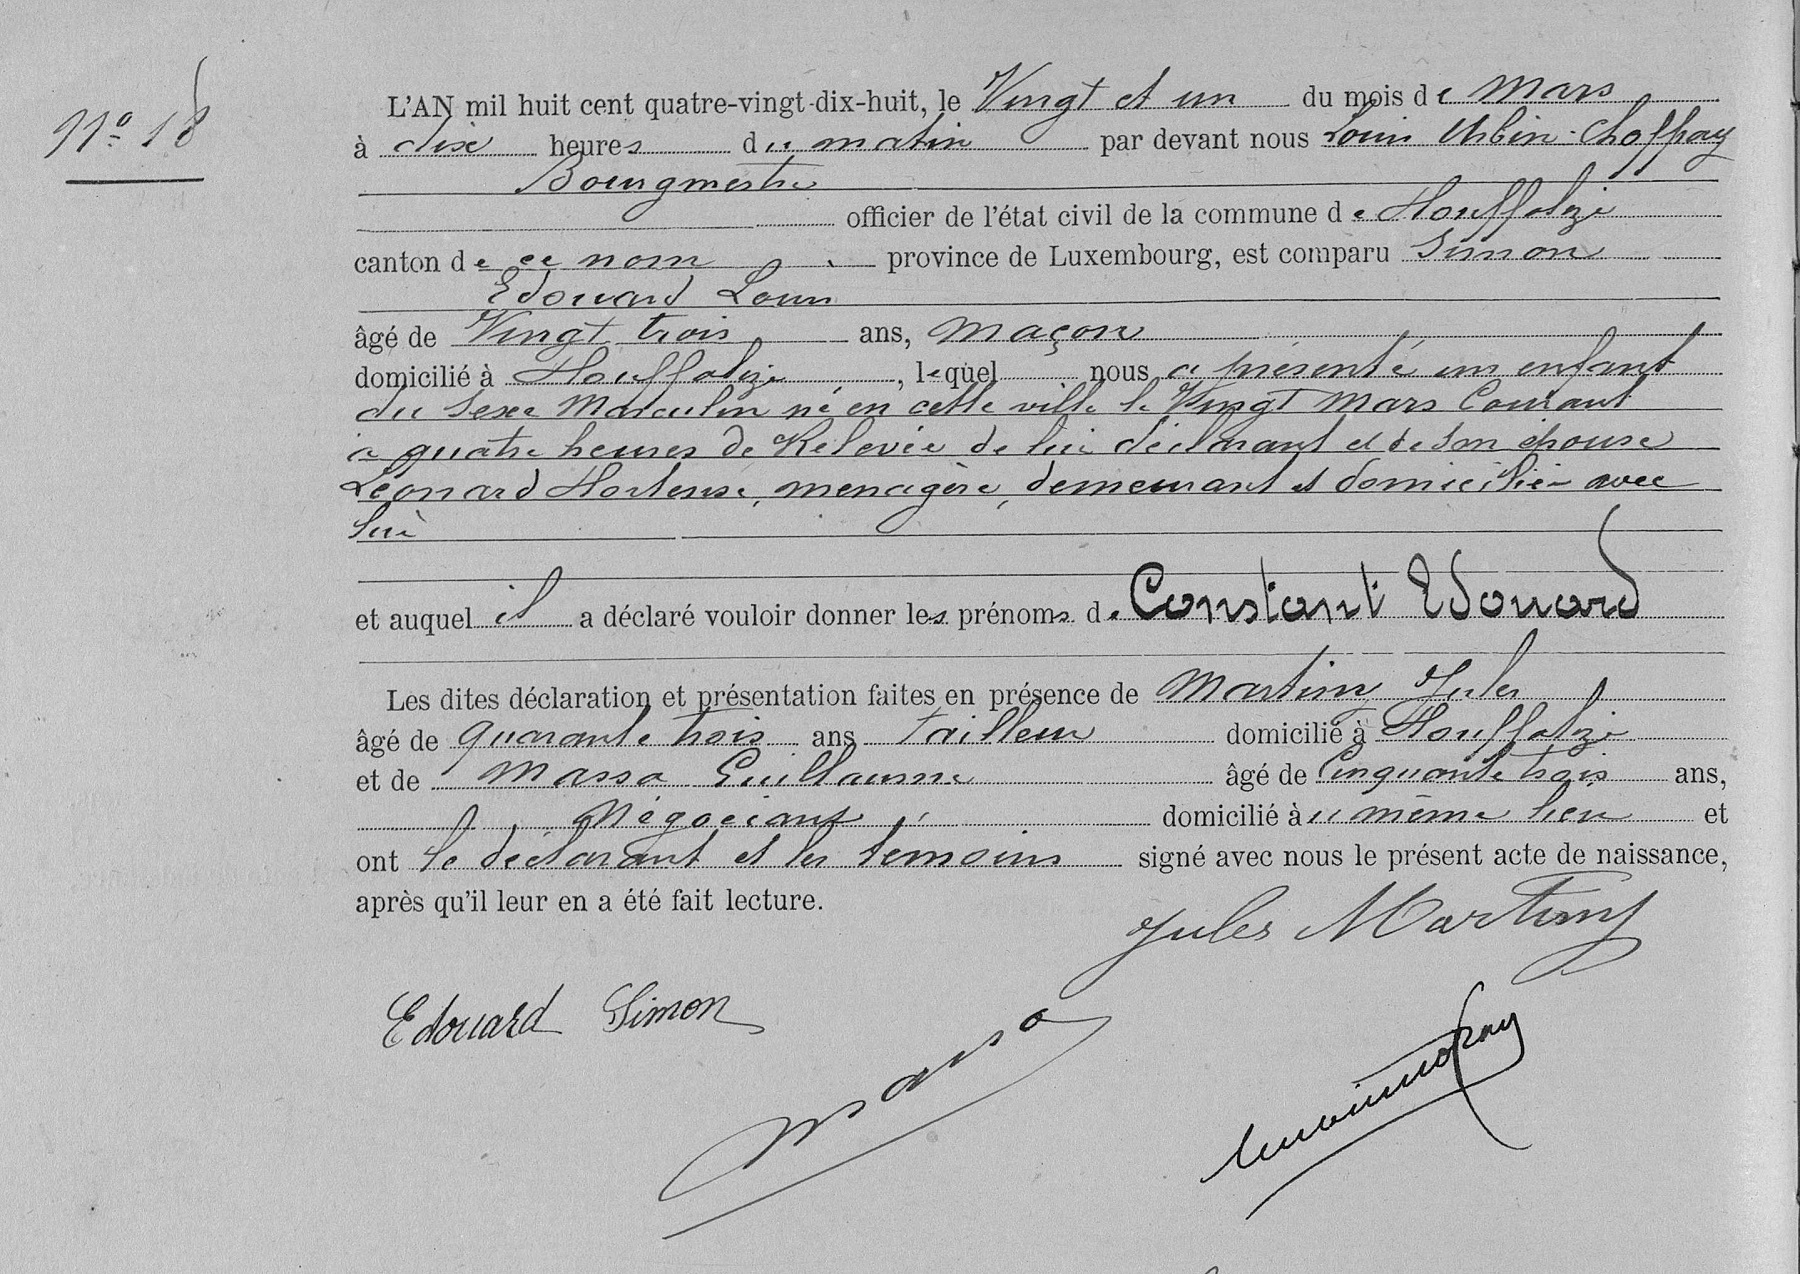 N° 18
L'AN mil huit cent quatre-vingt-dix-huit, le Vingt et un du mois de Mars
à dix heures du matin par devant nous Louis Urbin Choffray
Bourgmestre
officier de l'état civil de la commune de Houffalize
canton de ce nom province de Luxembourg, est comparu Simon
Edouard Louis
âgé de Vingt trois ans, maçon
domicilié à Houffalize, lequel nous a présenté un enfant
du sexe Masculin né en cette ville le Vingt Mars Courant
à quatre heures de Relevée de lui déclarant et de son épouse
Léonard Hortense, menagère, demeurant et domiciliée avec
lui
et auquel il a déclaré vouloir donner les prénoms de Constant Edouard
Les dites déclaration et présentation faites en présence de Martiny Jules
âgé de quarante trois ans tailleur domicilié à Houffalize
et de Massa Guillaume âgé de Cinquante trois ans,
Négociant domicilié à même lieu et
ont le déclarant et les témoins signé avec nous le présent acte de naissance,
après qu'il leur en a été fait lecture.
Jules Martiny
Edouard Simon
Massa